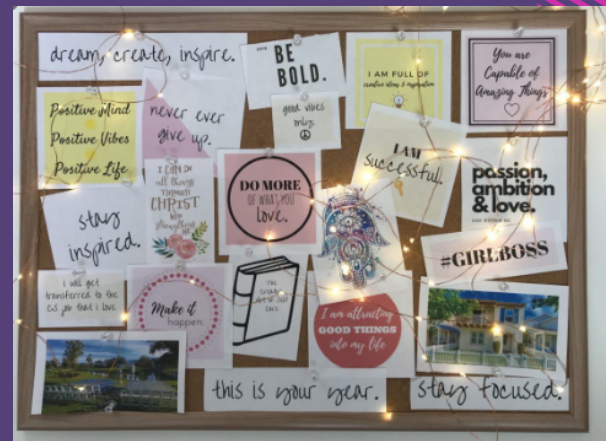 dream, create, inspire.
BE
BOLD.
I AM FULL OF
creative ideas & inspiration
You are
Capable of
Amazing Things
Positive Mind
Positive Vibes
Positive Life
never ever
give up.
good vibes
only.
I AM
successful.
I CAN DO
all things
THROUGH
CHRIST
Who
strengthens
ME
DO MORE
OF WHAT YOU
love.
passion,
ambition
& love.
stay
inspired.
#GIRLBOSS
i will get
transferred to the
job that i love
Make it
happen.
THE
I am attracting
GOOD THINGS
into my life
this is your year.
stay focused.